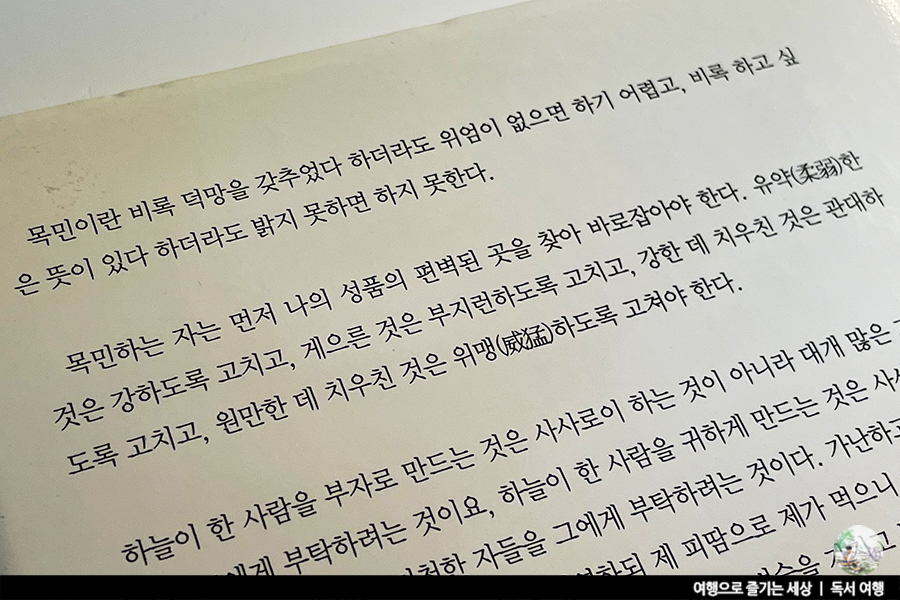 목민이란 비록 덕망을 갖추었다 하더라도 위엄이 없으면 하기 어렵고, 비록 하고 싶
은 뜻이 있다 하더라도 밝지 못하면 하지 못한다.
목민하는 자는 먼저 나의 성품의 편벽된 곳을 찾아 바로잡아야 한다. 유약(柔弱)한
것은 강하도록 고치고, 게으른 것은 부지런하도록 고치고, 강한 데 치우친 것은 관대하
도록 고치고, 원만한 데 치우친 것은 위맹(威猛)하도록 고쳐야 한다.
하늘이 한 사람을 부자로 만드는 것은 사사로이 하는 것이 아니라 대개 많은
에게 부탁하려는 것이요, 하늘이 한 사람을 귀하게 만드는 것은
자들을 그에게 부탁하려는 것이다. 가난하고
제 피땀으로 제가 먹으니
여행으로 즐기는 세상 | 독서 여행